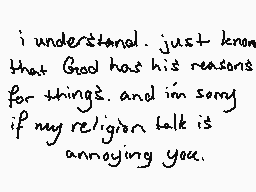 i understand. just know
that God has his reasons
for things. and i'm sorry
if my religion talk is
annoying you.